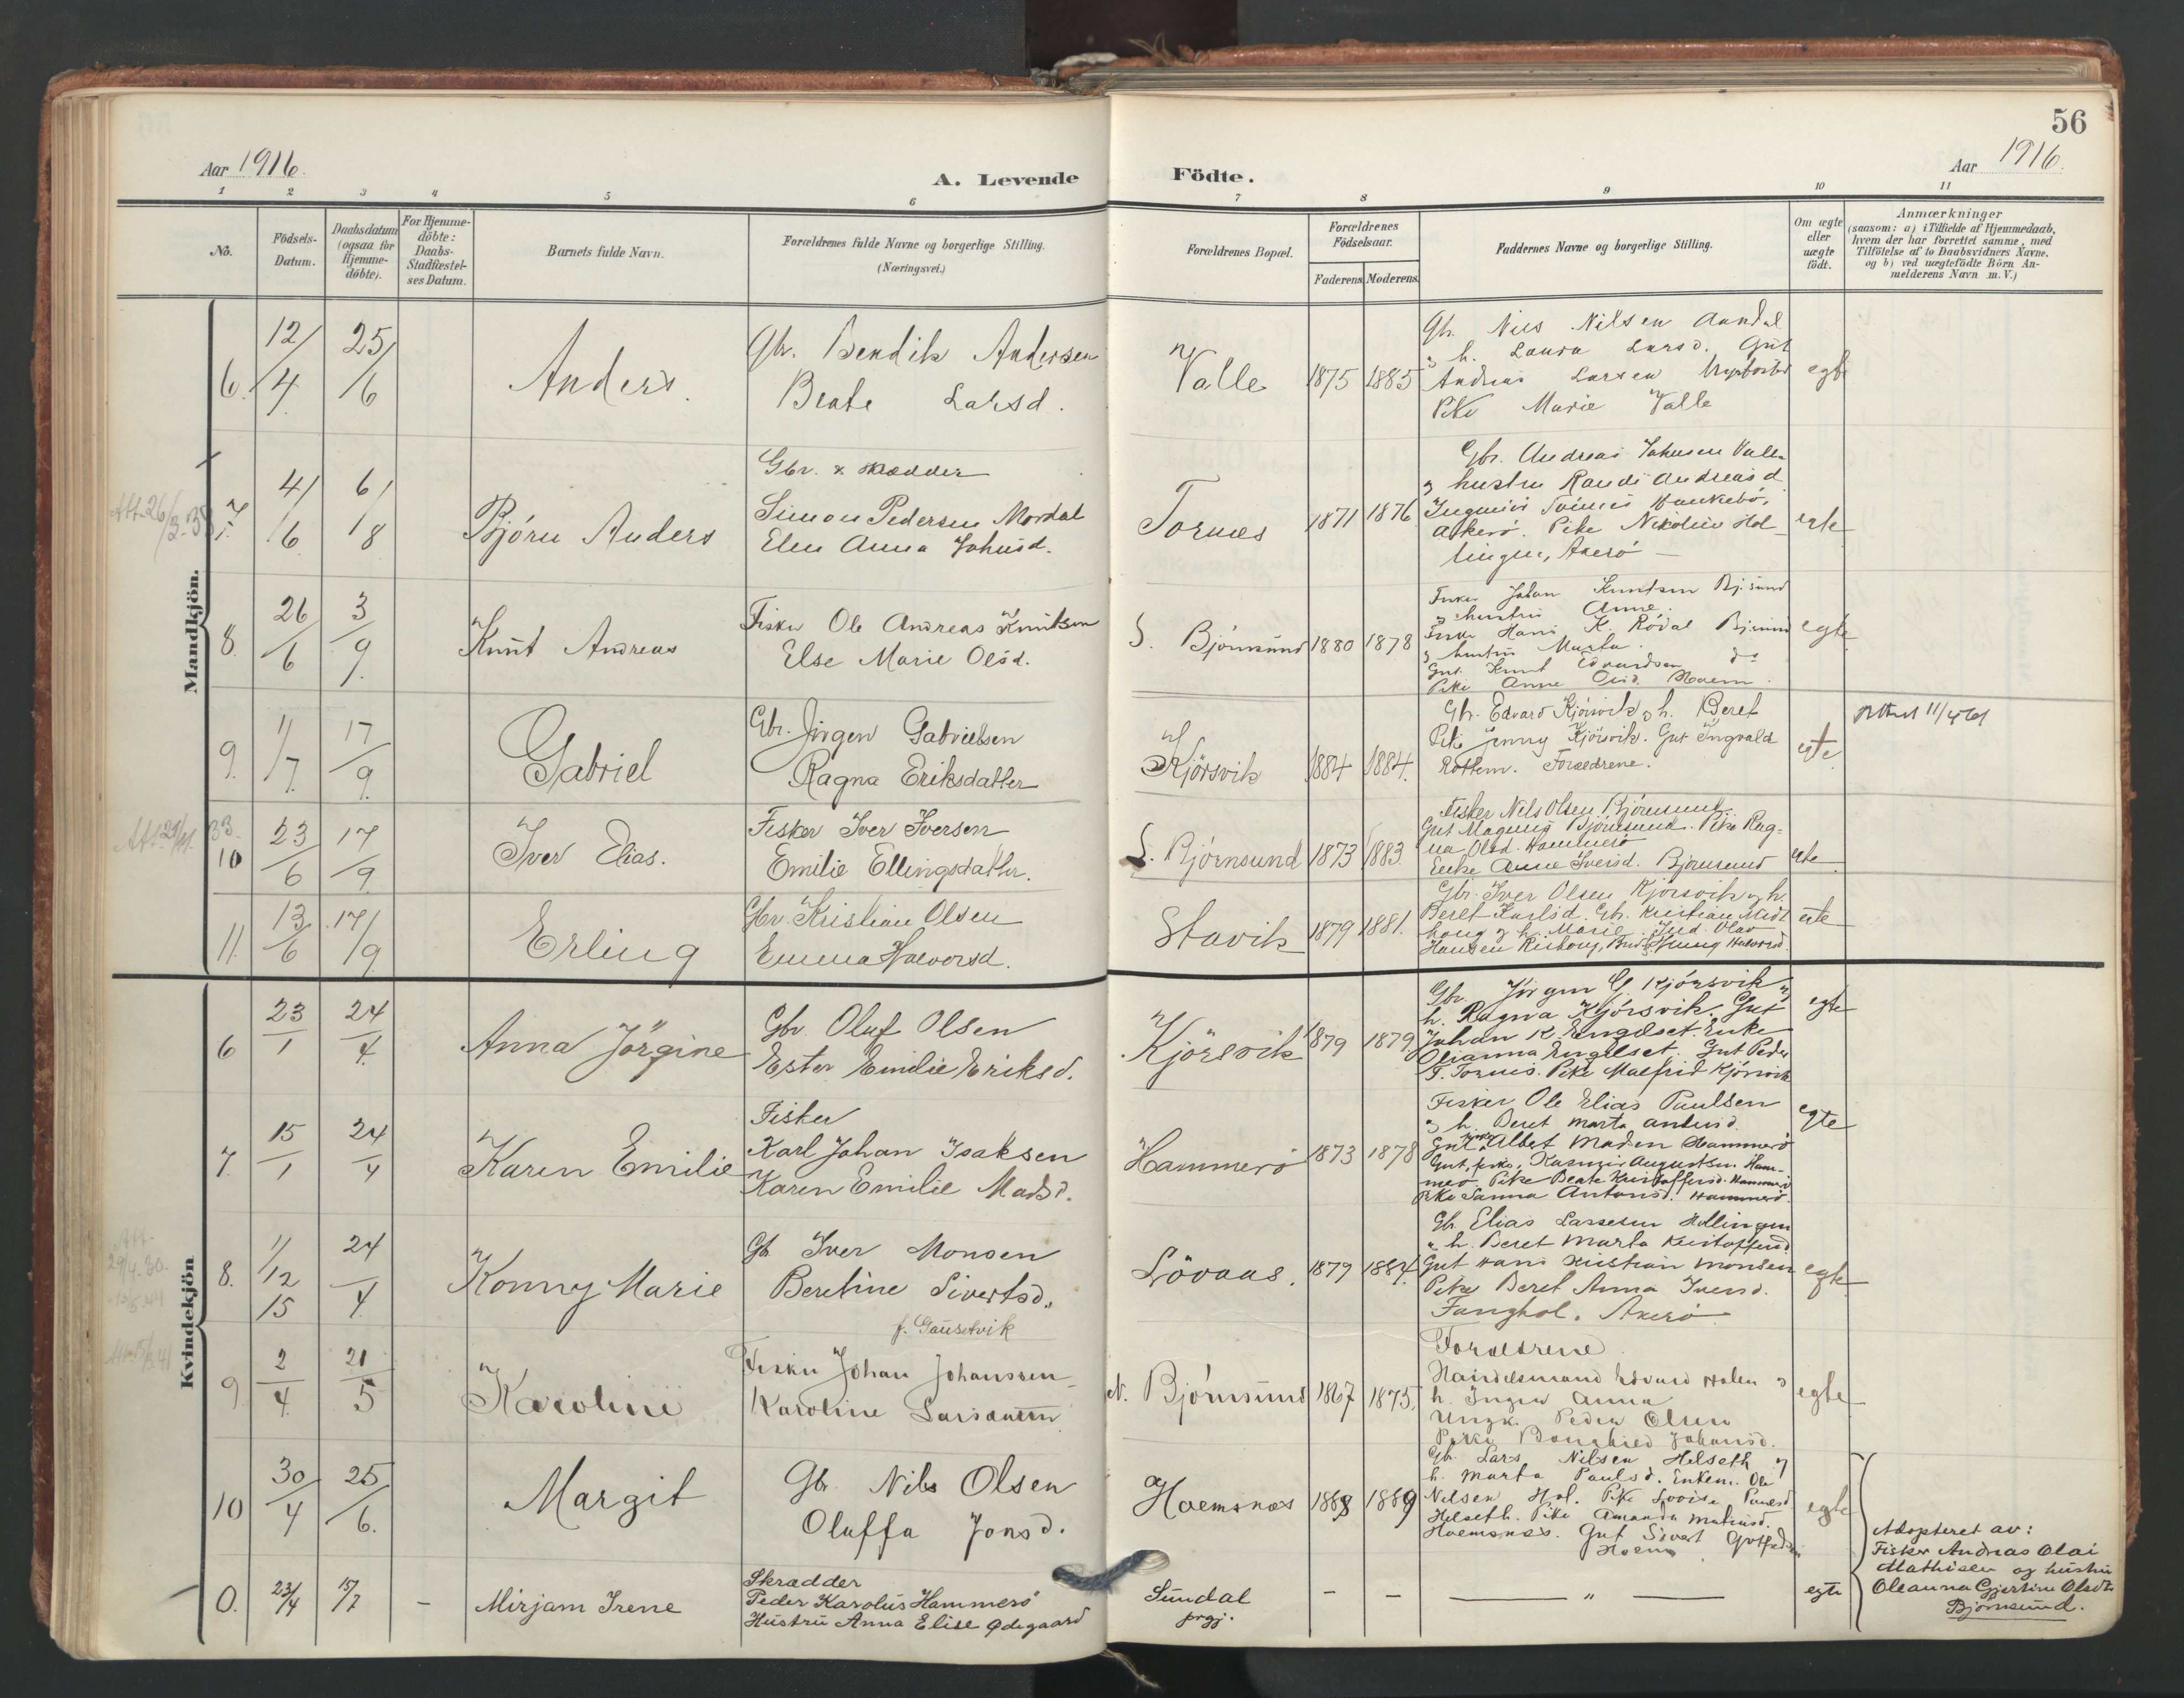 56
Aar 1916.
A. Levende Födte.
Aar 1916.
1 2 3 4 5 6 7 8 9 10 11
No.
Födsels-Datum.
Daabsdatum (ogsaa for Hjemme-döbte).
For Hjemme-döbte: Daabs-Stadfæstel-ses Datum.
Barnets fulde Navn.
Forældrenes fulde Navne og borgerlige Stilling.
(Næringsvei.)
Forældrenes Bopæl.
Forældrenes Födselsaar.
Faderens. Moderens.
Faddernes Navne og borgerlige Stilling.
Om ægte eller uægte födt.
Anmærkninger
(saasom: a) i Tilfælde af Hjemmedaab,
hvem der har forrettet samme, med
Tilföielse af to Daabsvidners Navne,
og b) ved uægtefödte Börn An-
melderens Navn m. V.)
Mandkjön.
6. 12/4. 25/6 Anders.
Gbr. Bendik Andersen
Beate Larsd.
Valle 1875 1885
Gbr. Nils Nilsen
h. Laura Larsd. Gut
Andreas Larsen
Pike Marie Valle
egte
7. 4/6 6/8 Bjórn Anders
Gbr. & skrædder
Simon Pedersen Mordal
Elen Anna Johnsd.
Tornes 1871 1876
Gbr. Andreas Johnsen
hustru Randi Andreasd
Akerö. Pike Nikoline Hol-
lingen, Akerö
egte
8. 26/6 3/9. Knut Andreas
Fisker Ole Andreas Knutsen
Else Marie Olsd.
S. Bjórnsund 1880 1878
Fisker Johan Knutsen Bj.sund
hustru Anne.
Fisker Hans K. Ródal
hustru Marta.
Gut. Knut Edvardsen do
Pike Anne
egte
9. 11/7. 17/9. Gabriel
Gbr. Jörgen Gabrielsen
Ragna Eriksdatter
Kjörsvik 1884 1884.
Gbr. Edvard Kjörsvik h. Beret
Pike Jenny Kjörsvik. Gut Ingvald
Rottem. Forældrene.
egte
10 23/6 17/9. Iver Elias.
Fisker Iver Iversen
Emilie Ellingsdatter.
S. Bjórnsund 1873 1883.
Fisker Nils Olsen Bjórnsund
Gut Magnus Bjórnsund. Pike Rag-
na Olsd. Hammerö
Enke Anne Iversd. Bjórnsund
egte
11. 13/6 17/9 Erling
Gbr. Kristian Olsen
Emma Halvorsd.
Stavik 1879 1881.
Gbr. Iver Olsen Kjörsvik og h.
Beret Karlsd. Gbr. Kristian Midt
haug og h. Marie.
egte
Kvindekjön
6 23/1 24/4. Anna Jörgine
Gbr. Oluf Olsen
Ester Emilie Eriksd.
Kjörsvik 1879 1879
Gbr. Jörgen G. Kjórsvik og
h. Ragna Kjórsvik. Gut
Johan K Engelset. Enke
Olianna Engelset. Gut Peder
T. Tornes. Pike Malfrid Kjörsvik
egte
7. 15/1 24/4 Karen Emilie
Fisker
Karl Johan Isaksen
Karen Emilie Madsd.
Hammerö 1873 1878
Fisker Ole Elias Paulsen
h. Beret Marta
Gut Albet Madsen Hammerö
Gut, fisker, Kasper Augustsen. Ham-
merö. Pike Beate Kristoffersd. Hammerö
Pike Sanna Antonsd. Hammerö
egte
8. 11/12 15 24/4. Konny Marie
Gb. Iver Monsen
Beretine Sivertsd.
f. Gausetvik
Lövaas. 1879 1884.
Gb. Elias Larsen Hollingen
h. Beret Marta Kristoffersd
Gut Hans Kristian Monsen
Pike Beret Anna Iversd.
Fanghol. Akerö
egte
9 2/4. 21/5 Karoline
Fisker Johan Johanssen
Karoline Larsdatter
N. Bjórnsund 1867 1875.
Forældrene
Handelsmand Edvard Holen
h. Inger Anna
Ungk. Peder Olsen
Pike Johansd.
egte
10 30/4 25/6. Margit
Gbr. Nils Olsen
Oluffa Jonsd.
Haemsnæs 1868 1869
Gbr. Lars Nilsen Helseth og
h. Marta Paulsd. Enkem. Ole
Nilsen Hol. Pike Lovise Paulsd
Helseth. Pike Amanda
Haemsnæs. Gut Sivert
egte
0. 23/4 15/7 – Mirjam Irene
Skrædder
Peder Karolus Hammerö
Hustru Anna Elise Ødegaard
Sundal
prgj.
– – — „ — egte
Adopteret av:
Fisker Andreas Olai
Mathisen og hustru
Oleanna Gjertine Olsdtr
Björnsund.